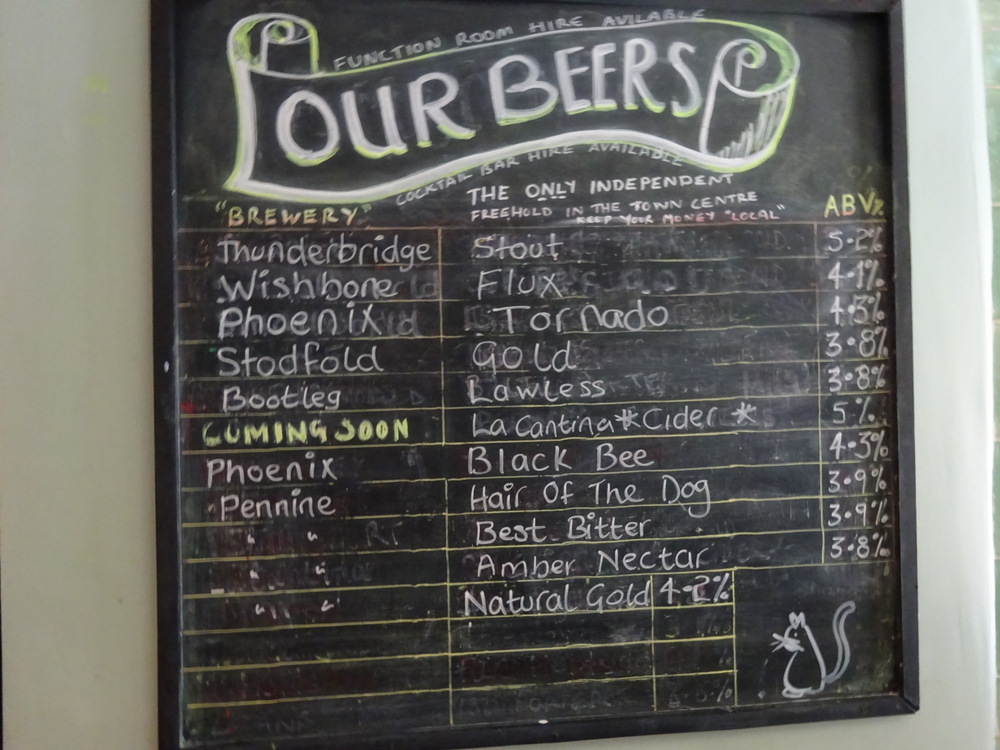 FUNCTION ROOM HIRE AVILABLE
OUR BEERS
COCKTAIL BAR HIRE AVAILABLE
THE ONLY INDEPENDENT
FREEHOLD IN THE TOWN CENTRE
KEEP YOUR MONEY "LOCAL"
"BREWERY" ABV%
Thunderbridge Stout 5.2%
Wishbone Flux 4.1%
Phoenix Tornado 4.3%
Stodfold Gold 3.8%
Bootleg Lawless 3.8%
COMING SOON La Cantina*Cider * 5%
Phoenix Black Bee 4.3%
Pennine Hair Of The Dog 3.9%
" " Best Bitter 3.9%
" " Amber Nectar 3.8%
" " Natural Gold 4.2%